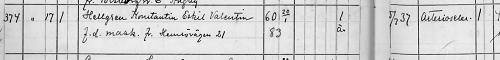 374 " 17 1 Hellgren Konstantin Eskil Valentin 60 20/1 1 5/2 37 Arterioscler.
f.d. mask. fr. Hemsövägen 21 83 år